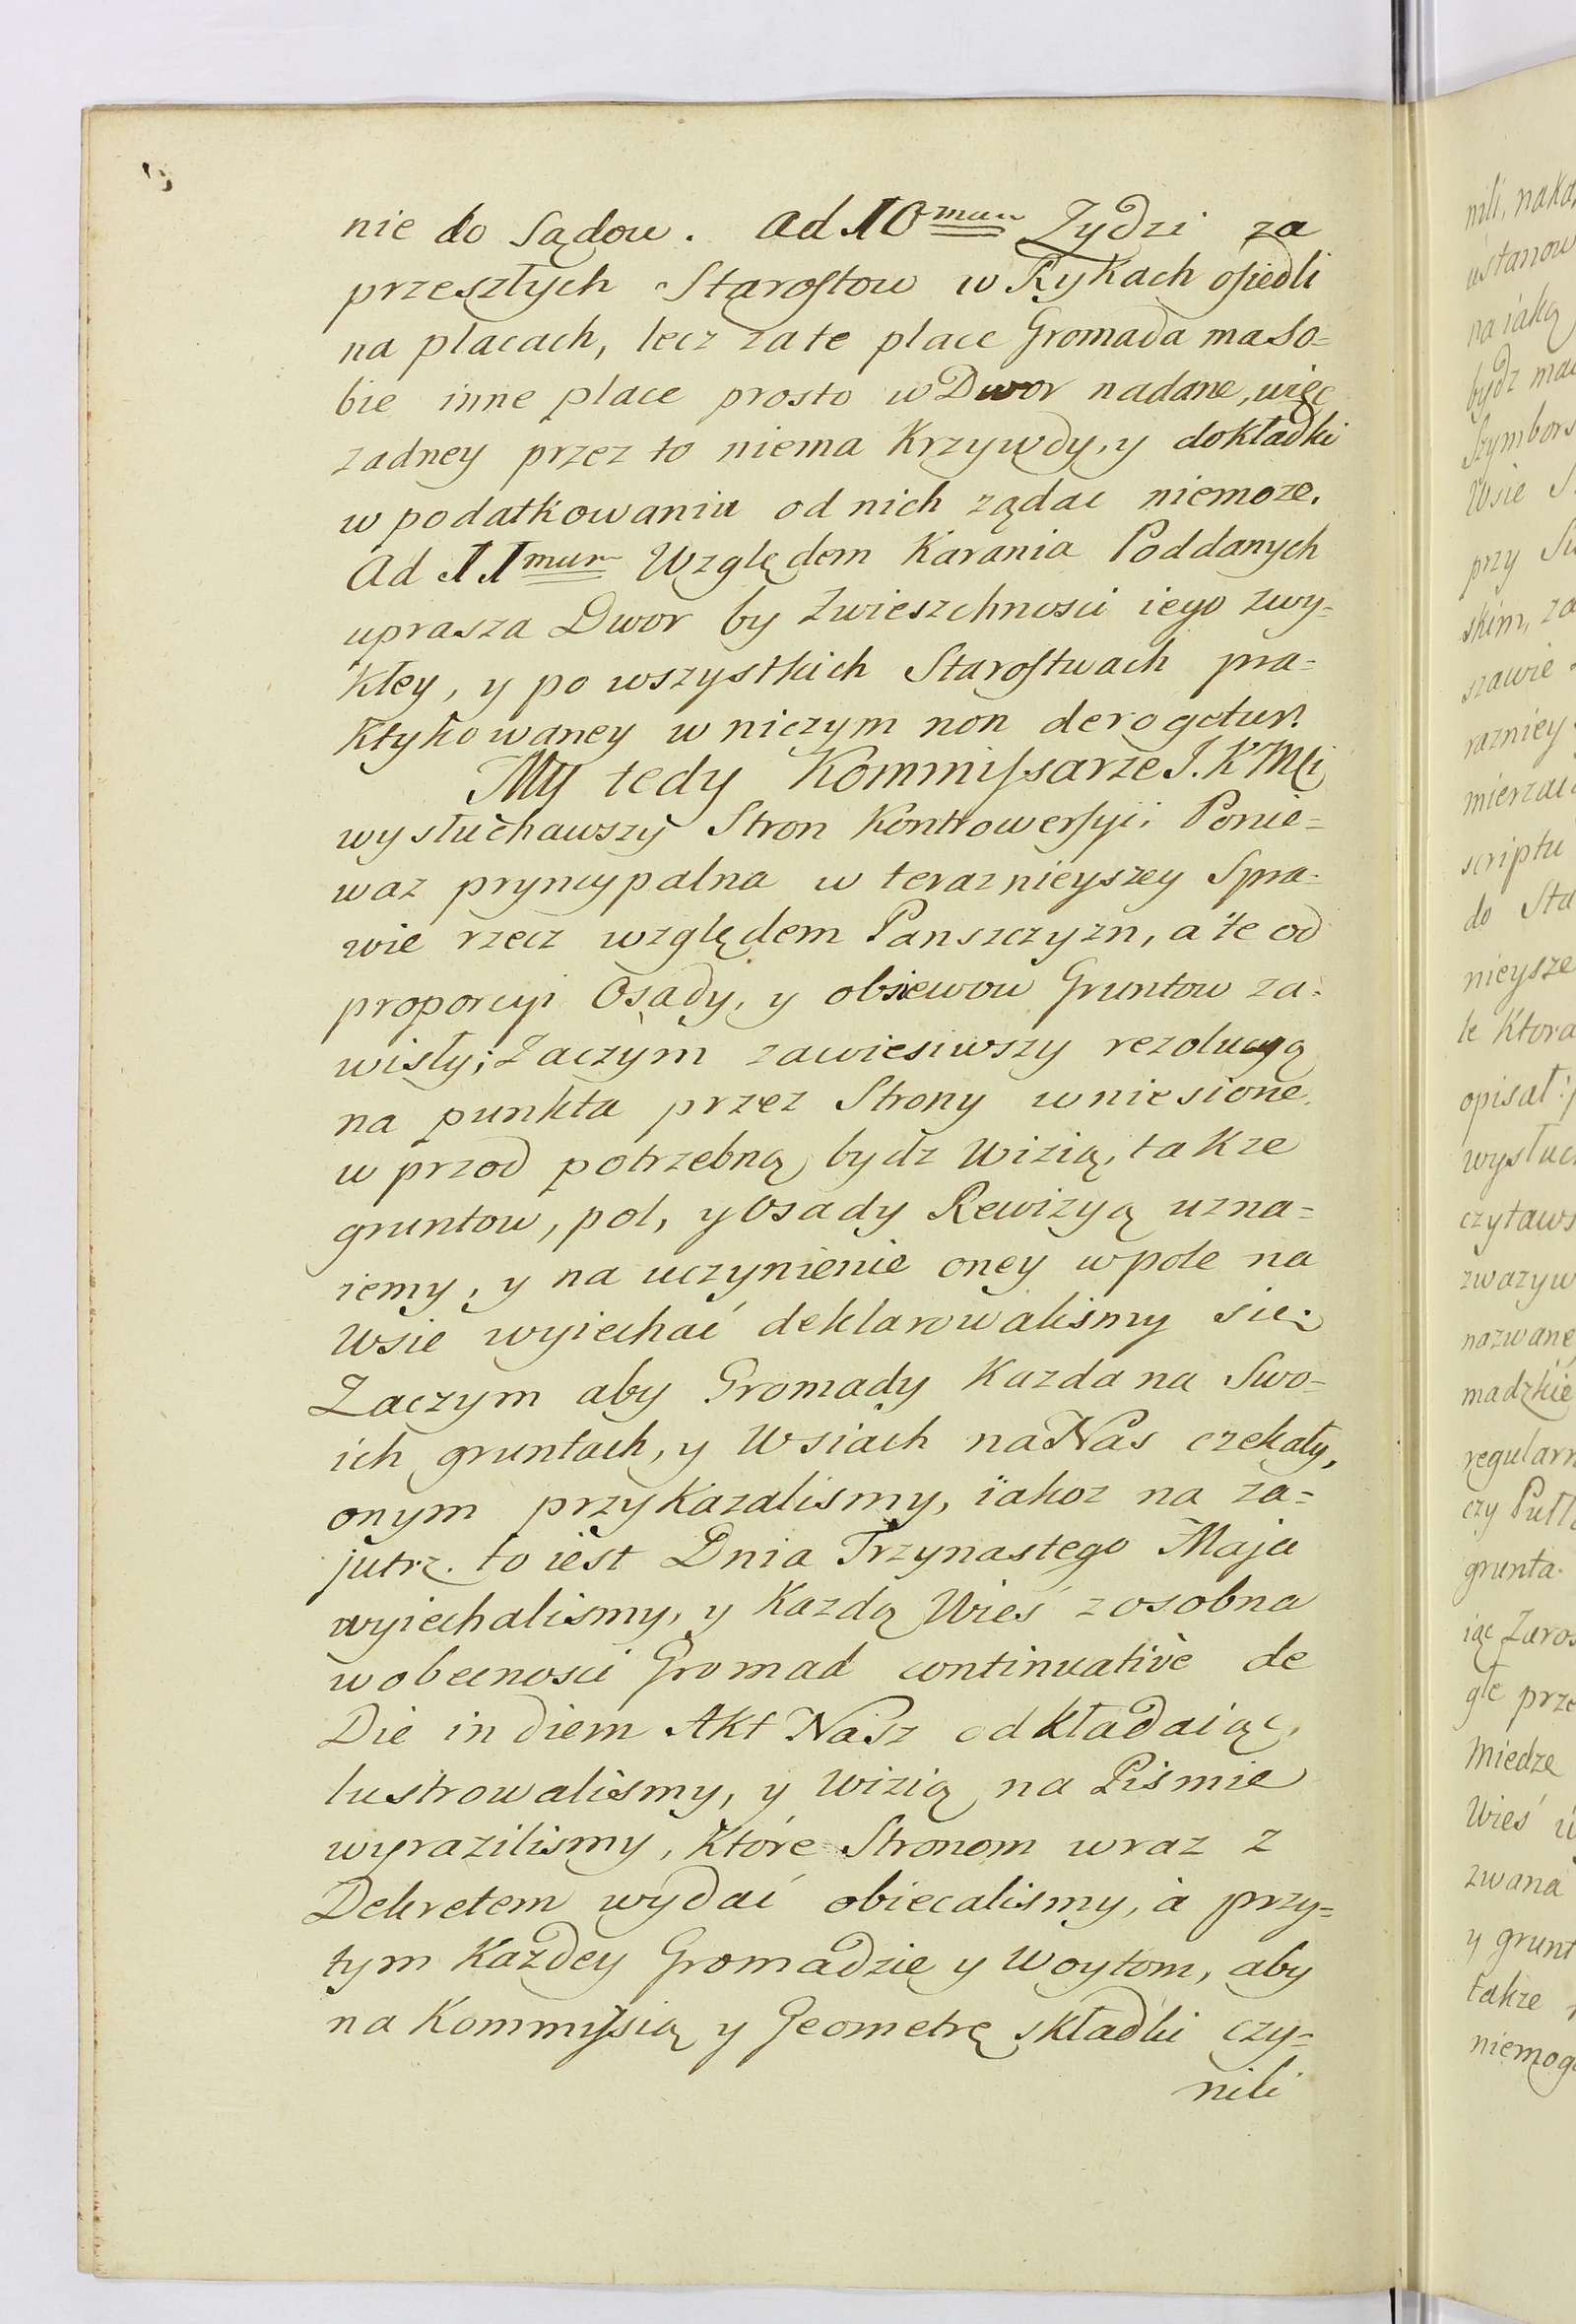 nie do Sądow. Ad 10mum Zydzi za
przeszłych Starostow w Rykach osiedli
na placach, lecz za te place Gromada ma so=
bie inne place prosto w Dwor nadane, więc
zadney przez to niema Krzywdy, y dokładki
w podatkowaniu od nich ządac niemoze.
Ad 11mum Względem Karania Poddanych
uprasza Dwor by Zwieszchnosci iego zwy=
kłey, y po wszystkich Starostwach pra=
ktykowaney w niczym non derogetur.
My tedy Kommissarze J. K Mci
wysłuchawszy Stron Kontrowersyi; Ponie=
waz pryncypalna w teraznieyszey Spra=
wie rzecz względem Panszczyzn, a te od
proporcyi Osady, y obsiewow Gruntow za=
wisły; Zaczym zawiesiwszy rezolucyą
na punkta przez Strony wniesione.
w przod potrzebną bydz Wizią, takze
gruntow, pol, y Osady Rewizyą uzna=
iemy, y na uczynienie oney w pole na
Wsie wyiechać deklarowalismy sie.
Zaczym aby Gromady Kazda na Swo=
ich gruntach, y Wsiach na Nas czekały,
onym przykazalismy, iakoz na za=
jutrz. to iest Dnia Trzynastego Maja
wyiechalismy, y Kazdą Wieś zosobna
w obecnosci Gromad continuative de
Die in diem Akt Nasz odkładaiąc,
lustrowalismy, y Wizią na Pismie
wyrazilismy, które Stronom wraz z
Dekretem wydać obiecalismy, à przy=
tym Każdey Gromadzie y Woytom, aby
na Kommissią y Geometrę składki czy=
nili
nili, naka
ustanow
na iaką
bydz ma
Szymbors
Wsie S
przy Su
skim, za
szawie
razniey
mierzai
scriptu
do Sta
nieysze
le Ktora
opisał
wysłuc
czytaws
zwazyw
nazwane
madzkie
regularn
czy Puł
grunta.
iąc Zaros
głe prze
Miedze
Wieś
zwana
y grunt
takze
niemog